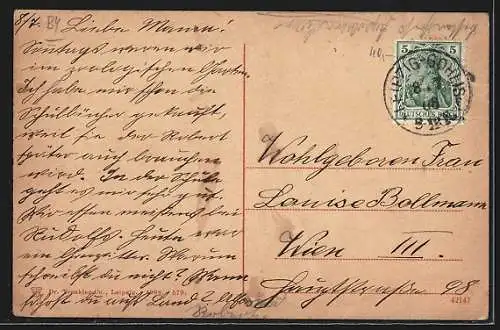 8/7.
Liebe Mama!
Sonntags waren wir
im zoologischen Garten.
Ich habe mir schon die
Schulbücher gekauft,
weil sie der Robert
später auch brauchen
wird. In der Schule
geht es mir sehr gut.
Wir essen meistens bei
Rudolfs. Heute war
ein Gewitter. Warum
schreibst du nicht? Wann
fährst du aufs Land?
5 5
DEUTSCHES REICH
LEIPZIG-GOHLIS
Wohlgeboren Frau
Louise Bollmann
Wien III.
Hauptstrasse 98
Dr. Trenkler Co., Leipzig.
42147